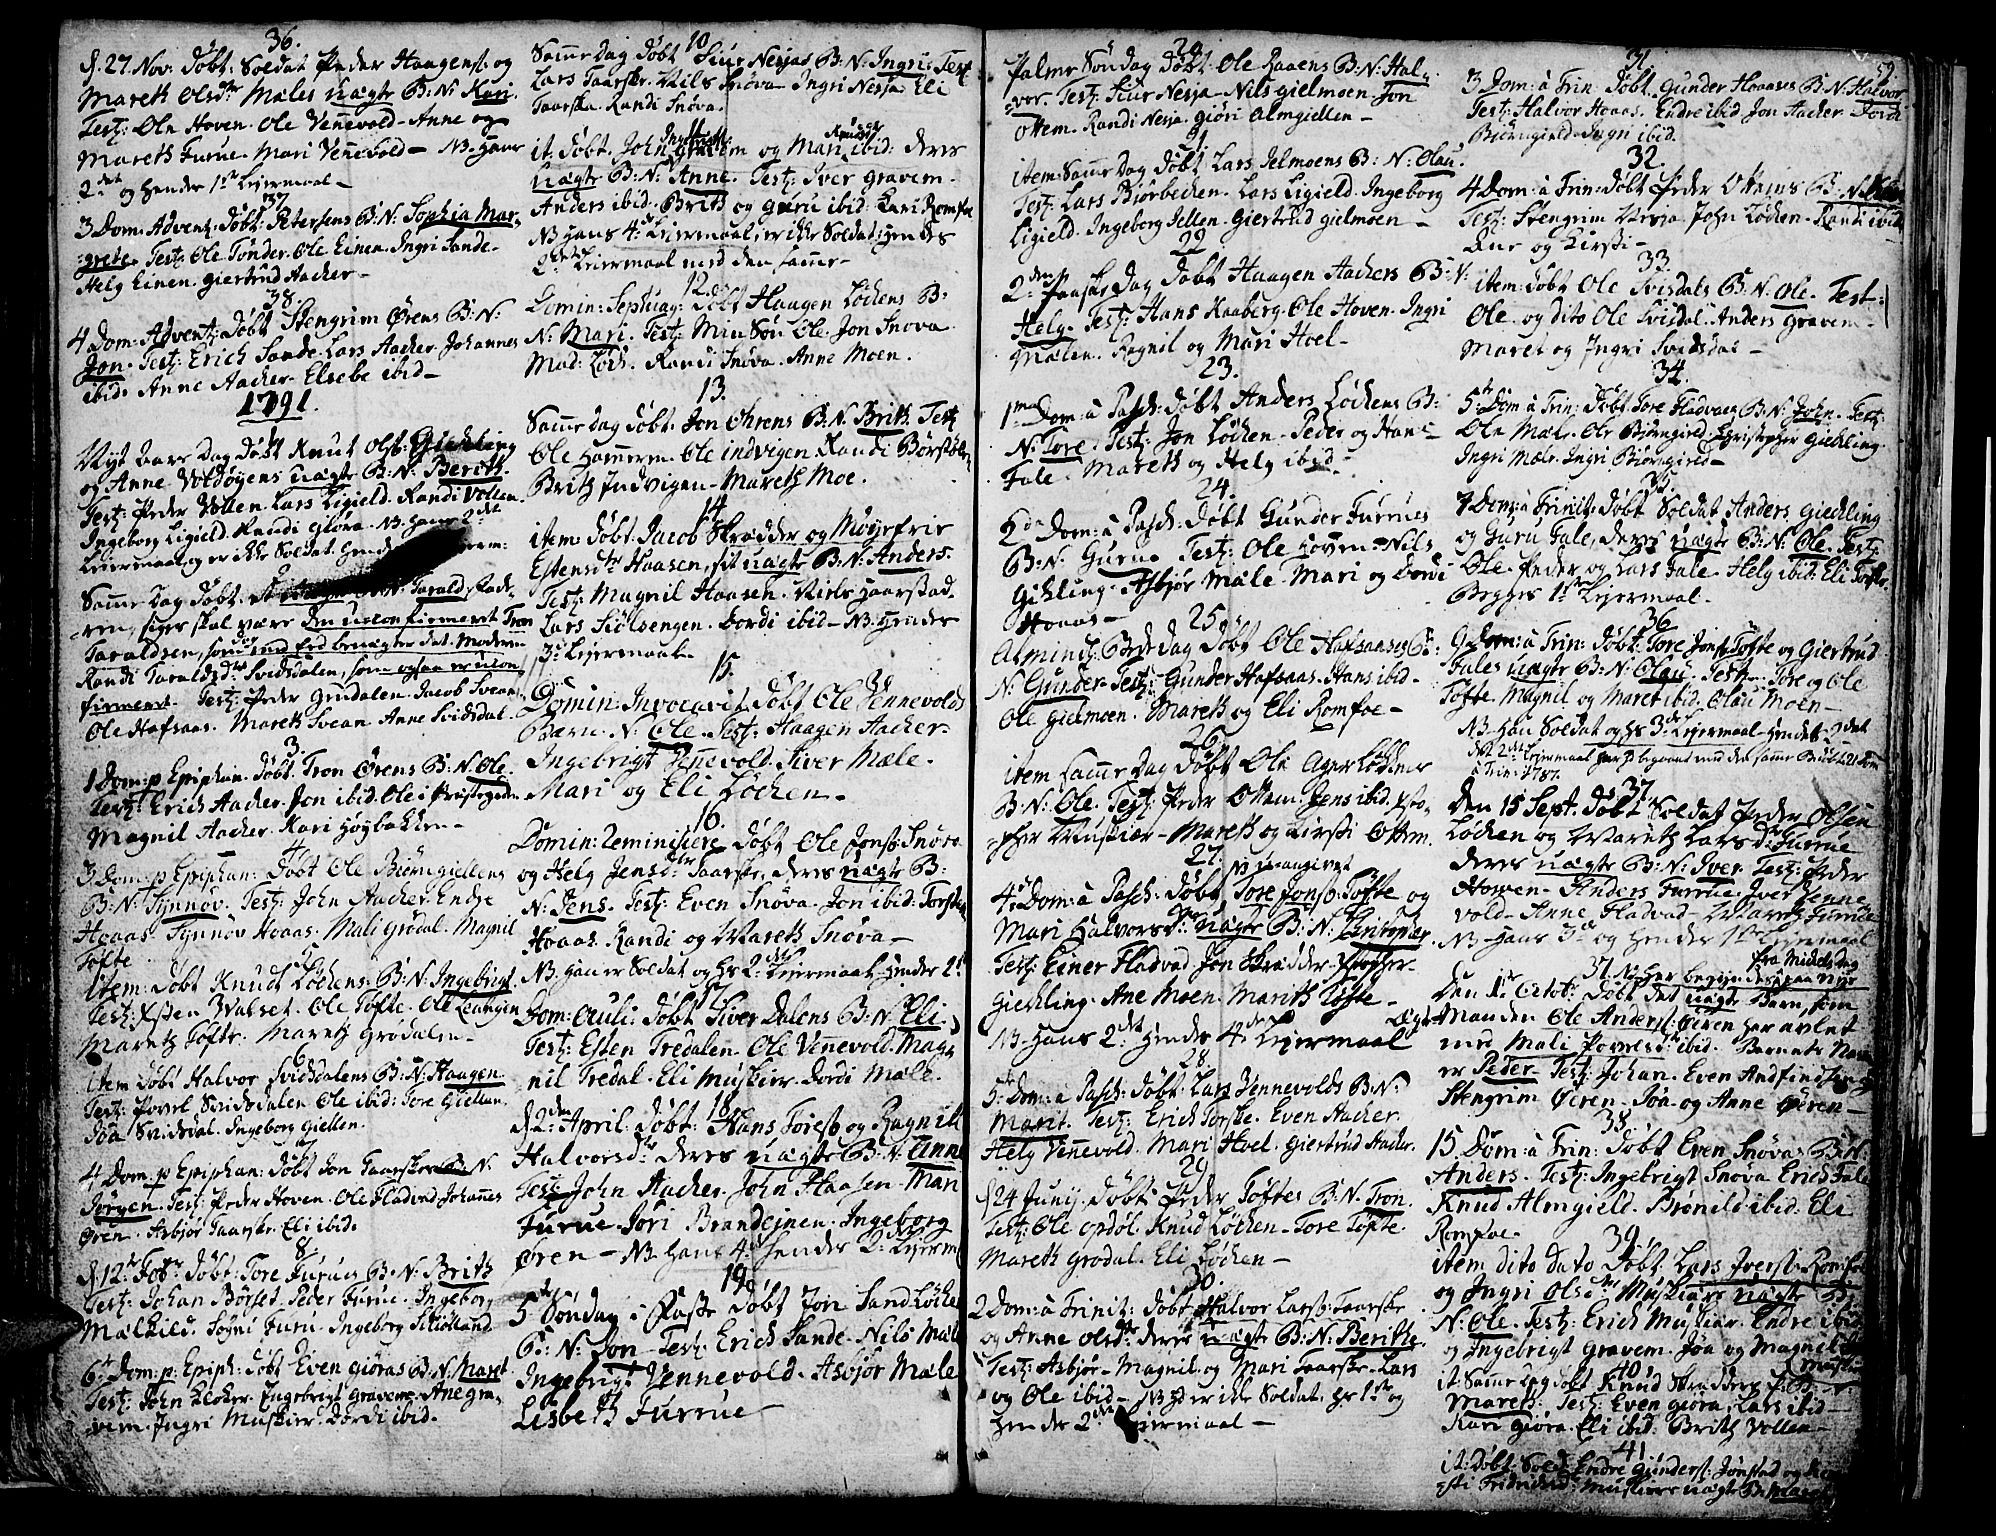 36.
d. 27. Nov: døbt: Soldat Peder Haagenss: og
Mareth Olsdtr Mæles uægte B: N: Kari.
Test: Ole Hoven. Ole Vennevold. Anne og
Mareth Furue. Mari Vennevold — NB. Hans
2det og hendes 1ste Lejermaal —
37
3 Dom: Advent: døbt: Petersens B: N: Sophia Mar-
grete. Test: Ole Tønder. Ole Einen. Ingri Sande.
Helg Einen. Giertrud Aacher —
38.
4 Dom: Advent: døbt Stengrim Ørens B: N:
Jon. Test: Erich Sande. Lars Aacher. Johannes
ibid. Anne Aacher. Elsebe ibid —
1791.
1
Nyt Aars Dag døbt Knut Ols: Gichling
og Anne Voldøyens uægte B: N: Berith.
Test: Peder Vollen. Lars Ligield. Randi Vollen.
Ingeborg Ligield. Randi Giøra. NB. Hans 2det
Lejermaal, og er ikke Soldat. Hendes
2
Samme Dag døbt. Tarald, Fad-
ren, siges skal være den uconfirmeret Tron
Taraldsen, som med Eed benægter det. Moderen
Randi Taraldsdtr Svidsdalen, som ogsaa er ucon-
firmeret. Test: Peder Grødalen. Jacob Svean.
Ole Hafsaas. Mareth Svean. Anne Svidsdal.
3.
1 Dom: p Epiphan. døbt. Tron Ørens B: N: Ole.
Test: Erich Aacher. Jon ibid. Ole i Præstegaarden
Magnil Aacher. Kari Høybakken —
4
3 Dom: p Epiphan: døbt Ole Biørngiellens
B: N: Synnøv. Test: John Aacher. Endre
Hoaas. Synnøv Hoaas. Mali Grødal. Magnil
Tøfte.
5
Item: døbt Knudt Løchens B: N: Ingebrigt.
Test: Esten Walset. Ole Tøfte. Ole Leangen
Mareth Tøfte. Mareth Grødalen —
6
item døbt Halvor Svidsdalens B: N: Haagen.
Test: Povel Svidsdalen Ole ibid: Tore Giellen.
Joa Svidsdal. Ingeborg Giellen.
7
4 Dom. p Epiphan: døbt Jon Taarskes B: N:
Jørgen. Test: Peder Hoven. Ole Fladvad. Johannes
Øren. Asbjør Taarske. Eli ibid.
8
d. 12te Febr: døbt: Tore Furues B: N: Brith
Test: Johan Børset. Peder Furue. Ingeborg
Mælhild. Sigri Furu. Ingeborg
9
6te Dom: p: Epiph: døbt Even Giøras B: N: Maret
Test: John Klokker. Engebrigt Gravem. Ane Gra-
vem. Ingri Muskier. Dordi ibid.
10
Samme Dag døbt Siur Nesjas B: N: Ingri. Test
Lars Taarske. Nils Snøva. Ingri Nesja Eli
Taarska. Randi Snøva.
11
it: døbt. John Gravem og Mari ibid: deres
uægte B: N: Anne. Test: Iver Gravem.
Anders ibid. Brith og Guru ibid. Kari Romfoe
NB. Hans 4de Lejermaal, er ikke Soldat. Hendes
2det Lejermaal med den samme —
12.
Domin: Septuag: døbt Haagen Løchens B:
N: Mari. Test: Min Søn Ole. Jon Snøva.
Mad: Løch. Randi Snøva. Anne Moen.
13.
Samme dag døbt. Jon Ohrens B: N. Brith. Test
Ole Hammer. Ole Indvigen. Randi Børstølen
Brith Indvigen. Mareth Moe.
14.
item: døbt. Jacob Skrædder og
Estensdtr Hoaasen, sit uægte B: N: Anders.
Test: Magnil Hoaasen. Niels Haarstad.
Lars Siølsengen. Dordi ibid — NB. Hendes
3die Lejermaal —
15.
Domin: Invocavit døbt Ole Vennevolds
Barn: N: Ole. Test: Haagen Aacher.
Ingebrigt Vennevold. Siver Mæle.
Mari og Eli Løchen —
16.
Domin: Reminiscere døbt Ole Jons: Snøva
og Helg Jensdtr Taarske, deres uægte B:
N: Jens. Test: Even Snøva. Jon ibid. Torsten
Hoaas. Randi og Mareth Snøva —
NB. han er Soldat og hs 2det Lejermaal. Hendes 2det
17
Dom: Oculi: døbt Siver Dalens B: N: Eli.
Test: Esten Tredalen. Ole Vennevold. Mag-
nil Tredal. Eli Muskier. Dordi Mæle.
18
d: 2den April. døbt: Hans Fores: og Ragnil
Halvorsdtr deres uægte B: N. Anne
Test: John Aacher. John Haasen. Mari
Furue. Jori Brandejnen. Ingeborg
Øren — NB. Hans 4de hendes 2det Lejerm
19
5te Søndag i Faste døbt Jon Sandløche
B: N: Jon — Test: Erich Sande. Nils Mæle
Ingebrigt Vennevold. Asbjør Mæle
Lisbeth Furrue —
20
Palme Søndag døbt. Ole Raaens B: N. Hal-
vor. Test: Siur Nesja. Nils Gielmoen. Jon
Ottem. Randi Nesja. Giøri Almgiellen —
21
item: Samme Dag døbt Lars Jelmoens B: N: Olau.
Test: Lars Bjørbechen. Lars Ligield. Ingeborg
Ligield. Ingeborg Jellen. Giertrud Gielmoen —
22
2den Paaske Dag døbt Haagen Aachers B: N.
Helg. Test: Hans Raaberg. Ole Hoven. Ingri
Mælen. Ragnil og Mari Hoel —
23.
1ma Dom: a Pasch: døbt Anders Løchens B:
N: Tore. Test: Jon Løchen. Peder og Hans
Fale. Mareth og Helg ibid —
24.
2da Dom: a Pasch: døbt Gunder Furrues
B: N. Gurue Test: Ole Hoven. Nils
Gichling. Asbjør Mæle. Mari og Dordi
Hoaas —
25
Almind: Bede Dag døbt Ole Hafsaases B:
N: Gunder. Test: Gunder Hafsaas. Hans ibid.
Ole Gielmoen. Mareth og Eli Romfoe —
26.
item samme Dag døbt Ole
B: N: Ole. Test: Peder Ottem. Jens ibid. Xsto-
pher Muskier — Mareth og Kirsti Ottem.
27.
4de Dom: a Pasch: døbt, Tore Jons: Tøfte og
Mari Halvorsdtr uægte B: N:
Test: Einer Fladvad Jon Skrædder Xstopher
Gichling. Ane Moen. Marith Tøfte —
NB. Hans 2det Hendes 4de Lejermaal
28
5te Dom: a Pasch: døbt Lars Vennevolds B: N:
Marit. Test: Erich Torske. Even Aacher
Helg Vennevold. Mari Hoel. Giertrud Aacher.
29
d 24 Junij. døbt: Peder Tøftes B: N. Tron.
Test: Ole Opdøl. Knud Løchen. Tore Tøfte.
Mareth Grødal. Eli Løchen —
30.
2 Dom: a Trinit: døbt Halvor Larss: Taarske
og Anne Olsdtr deres uægte B: N: Berithe
Test: Asbjør. Magnil og Mari Taarske. Lars
og Ole ibid — NB. er ikke Soldat. Hs 1ste og
Hendes 2det Lejermaal —
31.
59.
3 Dom: a Trin: døbt. Gunder Hoaases B: N: Halvor
Test: Halvor Hoaas. Endre ibid. Jon Aacher. Dordi
Biørngield. Ingri ibid.
32.
4 Dom: a Trin: døbt Peder Ottems B: N.
Test: Stengrim Nesja. John Løchen. Randi ibid.
Ane og Kirsti —
33.
item: døbt Ole Svisdals B: N. Ole. Test:
Ole og dito Ole Svisdal. Anders Gravem
Maret og Ingri Svidsdal —
34.
5te Dom: a Trin: døbt Tore Fladvaen B: N: John. Test:
Ole Mæle. Ole Biørngield. Christopher Gichling.
Ingri Mæle. Ingri Biørngield —
35.
7 Dom: a Trinit: døbt Soldat Anders Gichling
og Guru Fale, deres uægte B: N: Ole. Test:
Ole. Peder og Lars Fale. Helg ibid. Eli Tofte.
Begges 1ste Lejermaal —
36
9 Dom: a Trin: døbt. Tore Jons: Tøfte og Giertrud
Fales uægte B: N: Olau. Test: Tore og Ole
Tøfte. Magnil og Maret ibid. Olau Moen —
NB. Han Soldat og hs 3die Lejermaal. Hendes 2det
a Trin: 1787.
37
Den 15 Sept. døbt Soldat Peder Olsen
Løchen og Mareth Larsd: Furrue
deres uægte B: N: Iver. Test: Peder
Howen. Anders Furrue. Iver Venne
vold. Anne Fladvad. Mareth Furrue
NB. Hans 3die og Hendes 1ste Lejermaal
fra Michelsdag
37 No her begyndes paa Nye
Den 1ste Octobr: døbt det uægte Barn, som
Manden Ole Anders: Øren har avlet
med Mali Povelsdtr ibid. Barnets Navn
er Peder Test: Johan. Even
Stengrim Øeren. Joa og Anne Øeren —
38
15 Dom: a Trin: døbt Even Snøvas B: N:
Anders. Test: Ingebrigt Snøva Erich Fale
Knud Almgield. Brønild ibid. Eli
Romfoe.
39
item dito dato døbt: Lars Ivers: Romfoe
og Ingri Olsdtr Muskiærs uægte B:
N: Ole. Test: Erich Muskiær. Endre ibid
og Ingebrigt Gravem. Joa og Magnil
40
it: Samme Dag døbt Knud Skrædders B: N.
Mareth. Test: Even Giøra. Lars ibid —
Kari Giøra. Eli ibid. Brith Vollen —
41
it: døbt: Sold Endre Gunders: Jønstad og
uægte B: